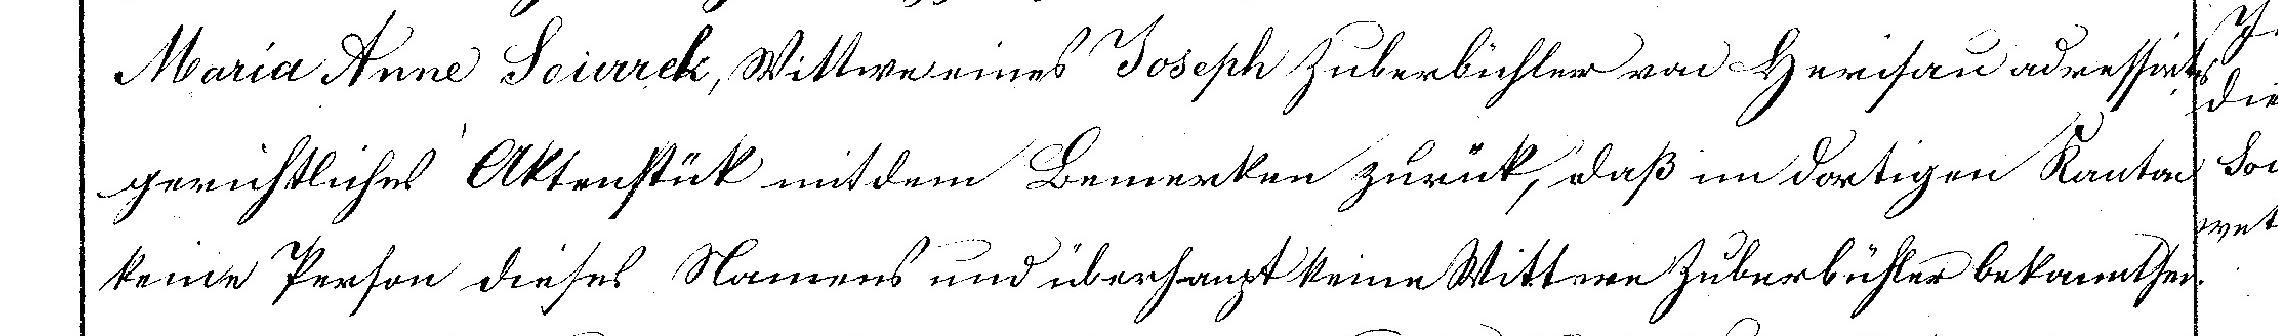 Maria Anne Sciurrek, Wittwe eines Joseph Zuberbühler von Herisau adressirtes
gerichtliches Aktenstük mit dem Bemerken zurük, daß im dortigen Kanton
keine Person dieses Namens und überhaupt keine Wittwe Zuberbühler bekannt sei.